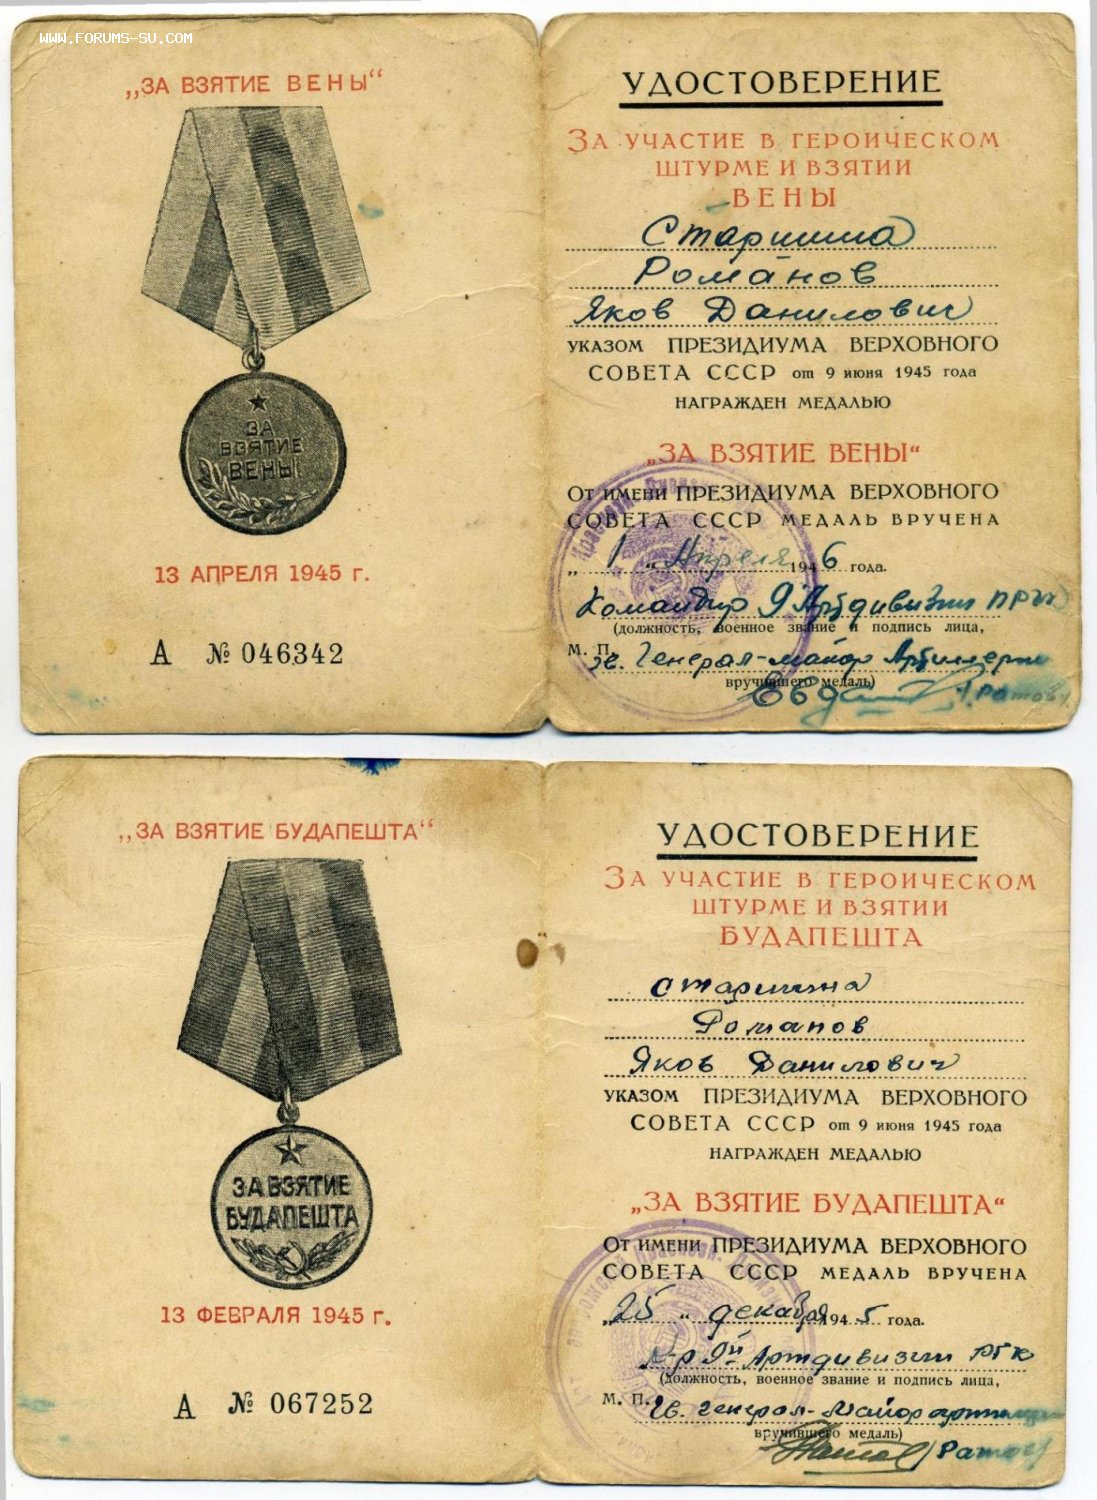 WWW.FORUMS-SU.COM
„ЗА ВЗЯТИЕ ВЕНЫ“
ЗА
ВЗЯТИЕ
ВЕНЫ
13 АПРЕЛЯ 1945 г.
А № 046342
УДОСТОВЕРЕНИЕ
ЗА УЧАСТИЕ В ГЕРОИЧЕСКОМ
ШТУРМЕ И ВЗЯТИИ
ВЕНЫ
Старшина
Романов
Яков Данилович
УКАЗОМ ПРЕЗИДИУМА ВЕРХОВНОГО
СОВЕТА СССР от 9 июня 1945 года
НАГРАЖДЕН МЕДАЛЬЮ
„ЗА ВЗЯТИЕ ВЕНЫ“
ОТ ИМЕНИ ПРЕЗИДИУМА ВЕРХОВНОГО
СОВЕТА СССР МЕДАЛЬ ВРУЧЕНА
„1“ Апреля 1946 года.
Командир 9 Артдивизии
(должность, военное звание и подпись лица,
М. П. Гв. Генерал-майор Артиллерии
вручившего медаль)
Ратов
„ЗА ВЗЯТИЕ БУДАПЕШТА“
ЗА ВЗЯТИЕ
БУДАПЕШТА
13 ФЕВРАЛЯ 1945 г.
А № 067252
УДОСТОВЕРЕНИЕ
ЗА УЧАСТИЕ В ГЕРОИЧЕСКОМ
ШТУРМЕ И ВЗЯТИИ
БУДАПЕШТА
старшина
Романов
Яков Данилович
УКАЗОМ ПРЕЗИДИУМА ВЕРХОВНОГО
СОВЕТА СССР от 9 июня 1945 года
НАГРАЖДЕН МЕДАЛЬЮ
„ЗА ВЗЯТИЕ БУДАПЕШТА“
ОТ ИМЕНИ ПРЕЗИДИУМА ВЕРХОВНОГО
СОВЕТА СССР МЕДАЛЬ ВРУЧЕНА
„25“ декабря 1945 года.
К-р 9й Артдивизии РГК
(должность, военное звание и подпись лица,
М. П. Гв. генерал-майор артиллерии
вручившего медаль)
/Ратов/